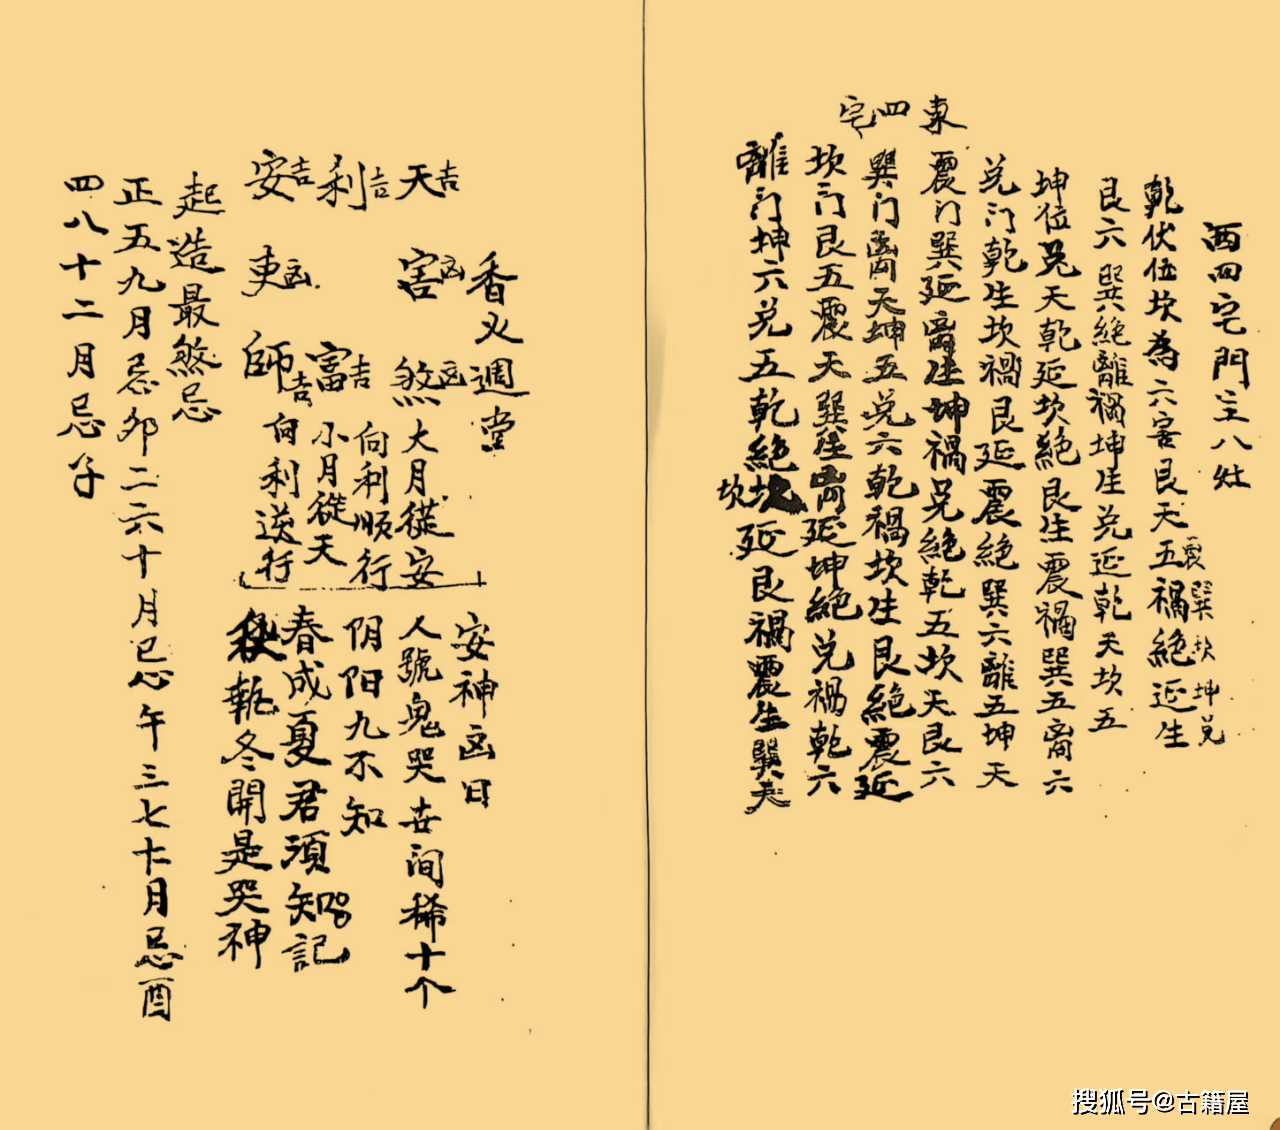 西四宅門主八灶
乾伏位坎為六害艮天五禍絕延生
震巽坎坤兑
艮六巽絕離禍坤生兑延乾天坎五
坤位兑天乾延坎絕艮生震禍巽五离六
兑门乾生坎禍艮延震絕巽六離五坤天
東四宅
震门巽延离生坤禍兑絕乾五坎天艮六
巽门离天坤五兑六乾禍坎生艮絕震延
坎门艮五震天巽生离延坤絕兑禍乾六
離门坤六兑五乾絕坎延艮禍震生巽天
坎
香火週堂
天吉 害凶 煞凶 大月從安
利吉 富吉 向利順行
小月從天
安吉 夫凶 師吉 向利逆行
安神凶日
人號鬼哭世间稀十个
阴阳九不知
春成夏君須知記
秋 冬開是哭神
起造最煞忌
正五九月忌卯二六十月忌午三七十一月忌酉
四八十二月忌子
搜狐号@古籍屋